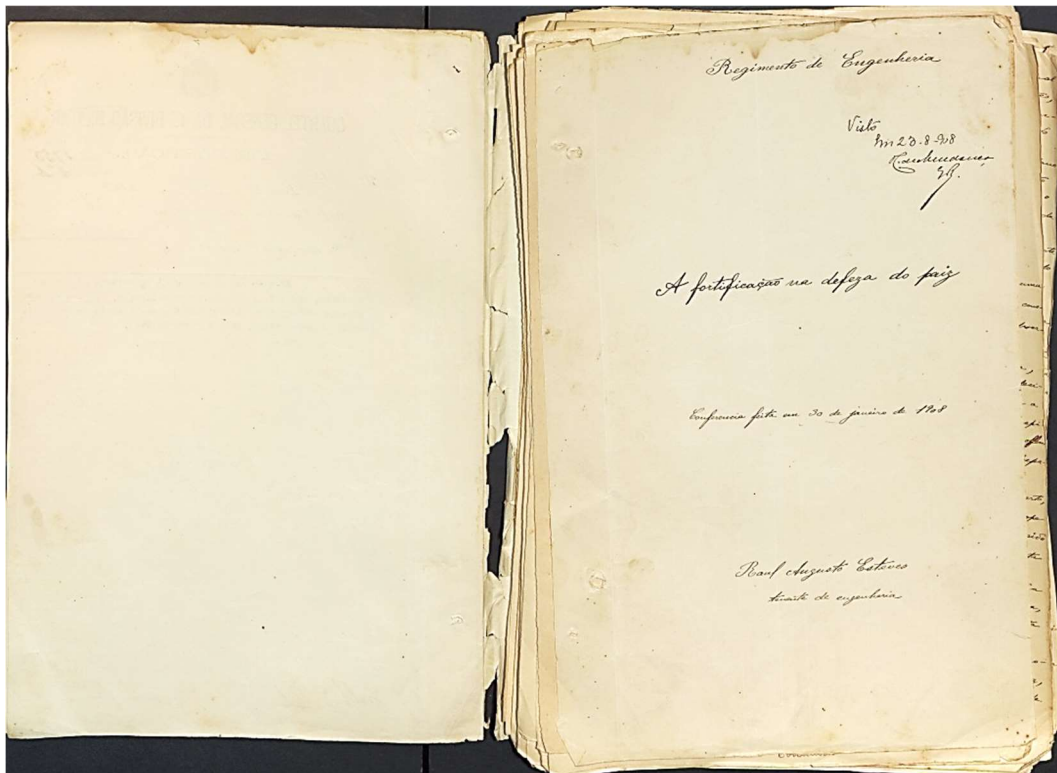 Regimento de Engenheria
Visto
Em 23-8-908
A fortificação na defeza do paiz
Conferencia feita em 30 de janeiro de 1908
Raul Augusto Esteves
tenente de engenheria